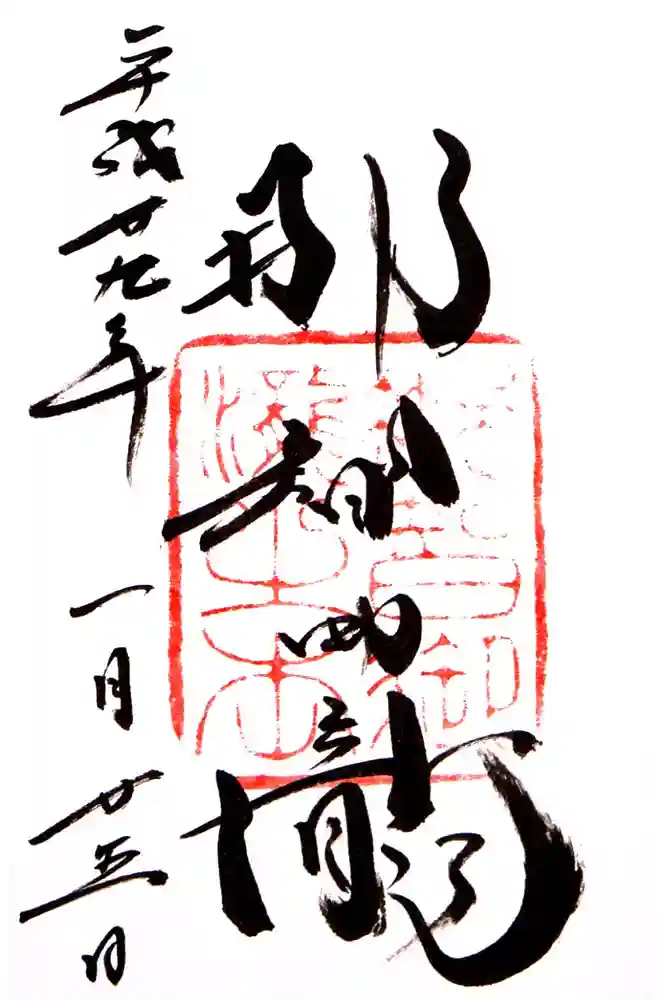 那智御瀧
平成廿九年 一月 廿五日